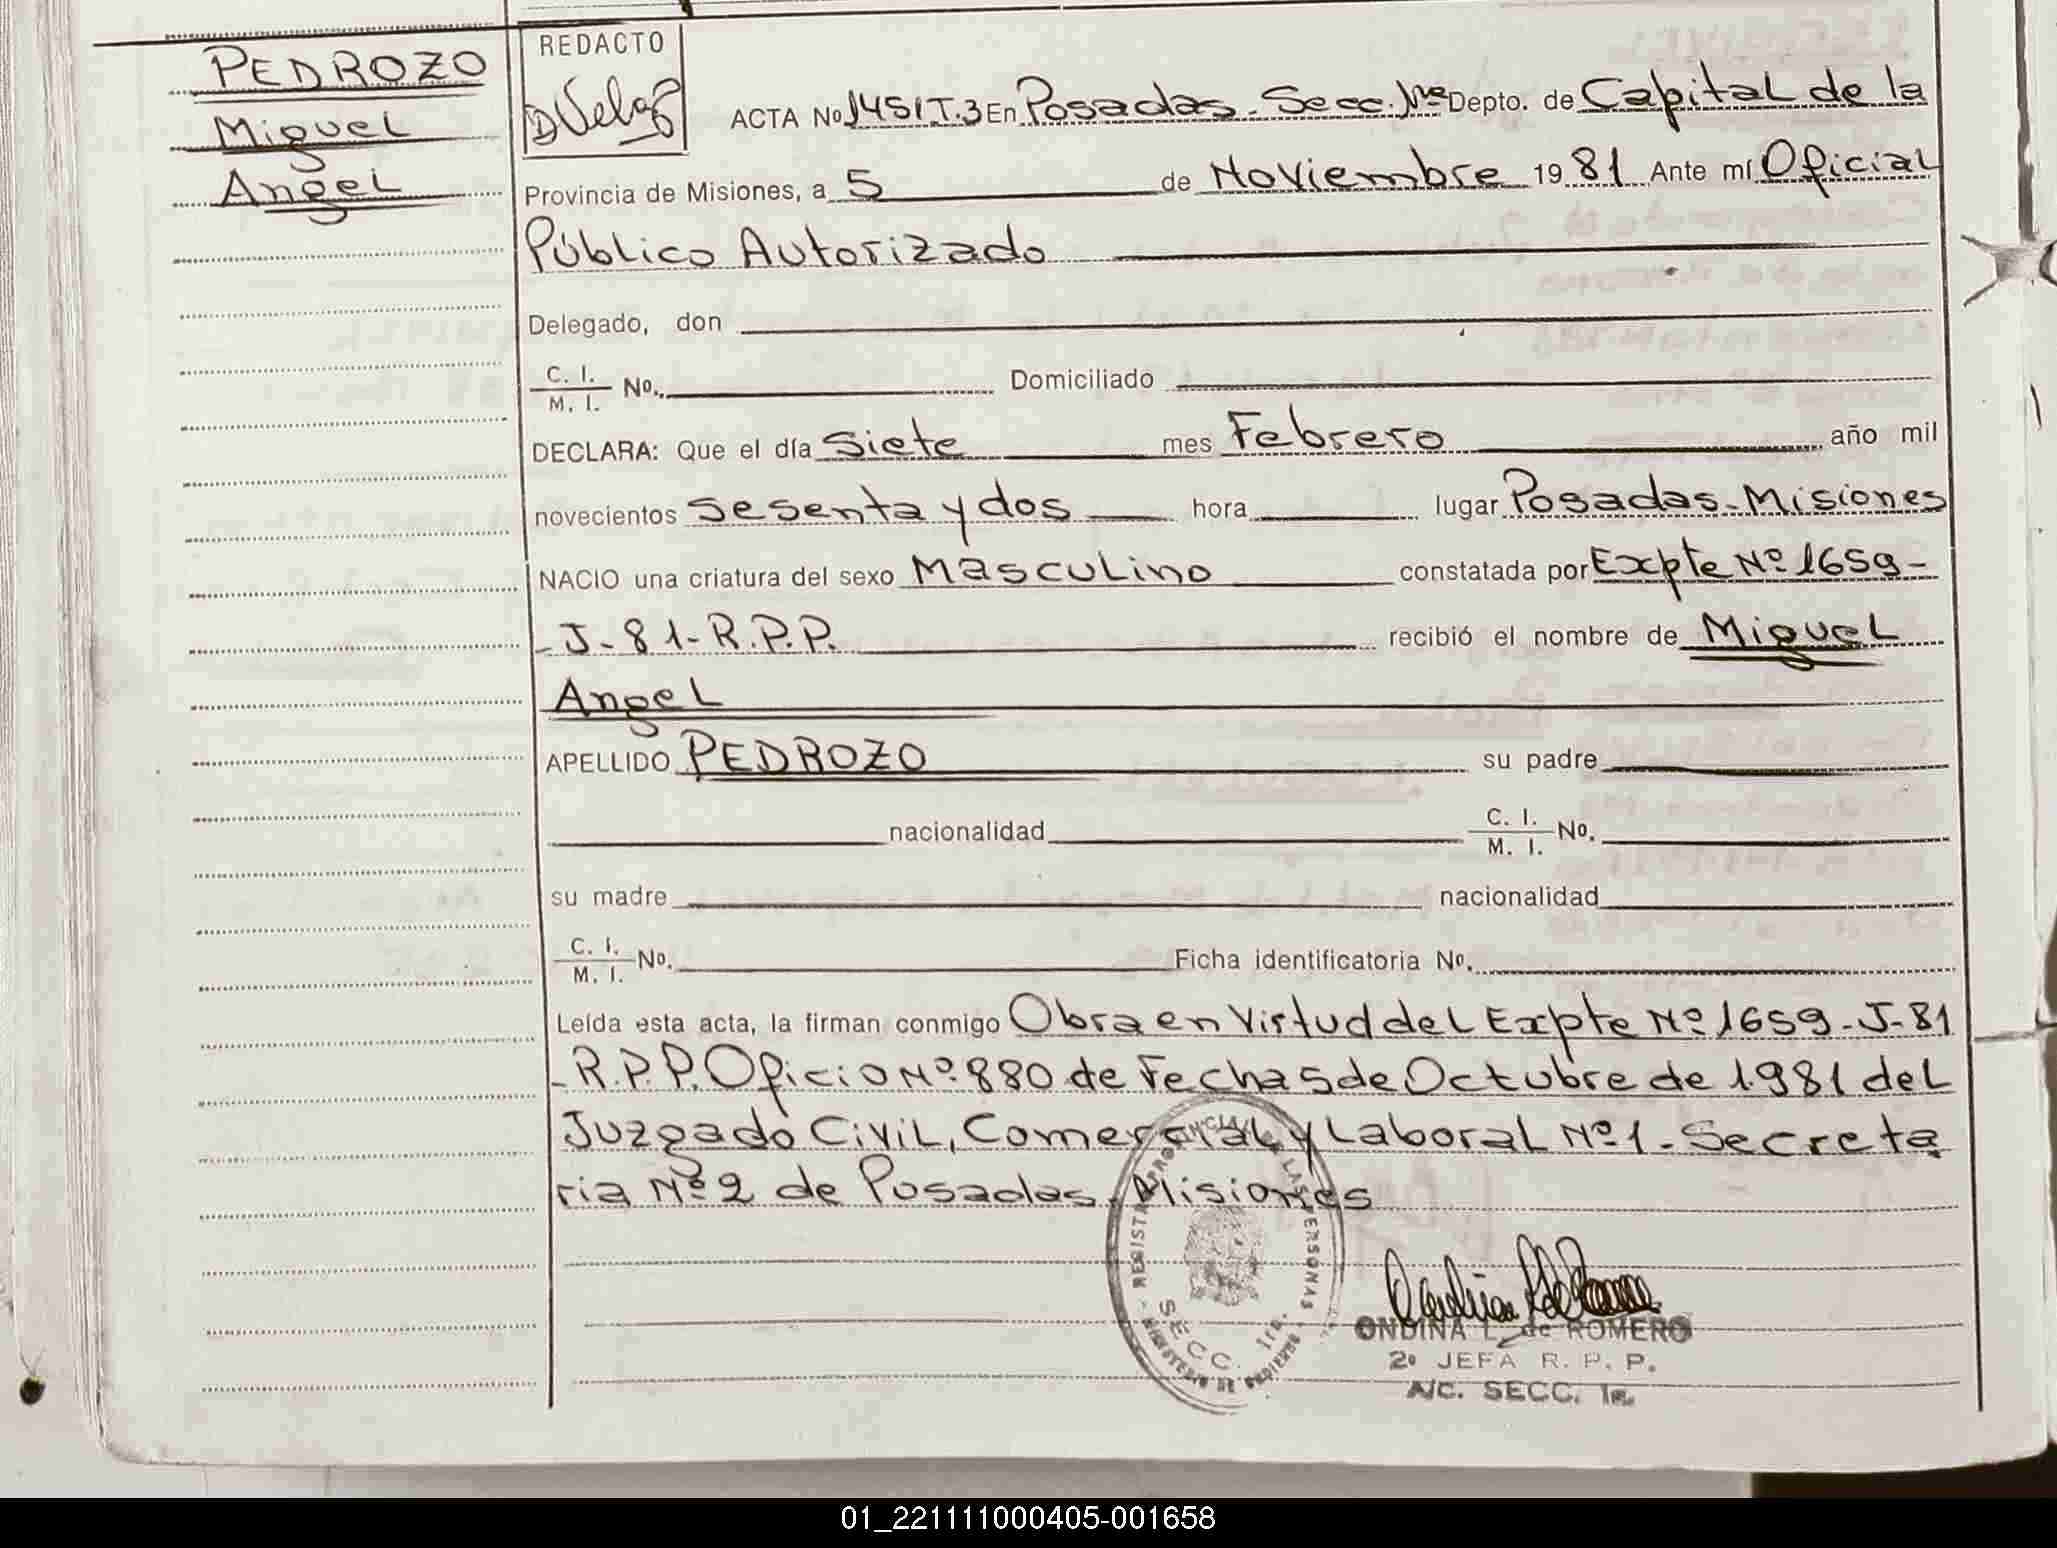 PEDROZO
Miguel
Angel
REDACTO
DVelaz
ACTA No 1451 T.3 En Posadas - Secc. 1ra Depto. de Capital de la
Provincia de Misiones, a 5 de Noviembre 1981 Ante mí Oficial
Público Autorizado
Delegado, don
C. I.
M. I. No. Domiciliado
DECLARA: Que el día Siete mes Febrero año mil
novecientos Sesenta y dos hora lugar Posadas - Misiones
NACIO una criatura del sexo Masculino constatada por Expte Nº 1659 -
- J - 81 - R.P.P. recibió el nombre de Miguel
Angel
APELLIDO PEDROZO su padre
nacionalidad C. I.
M. I. No.
su madre nacionalidad
C. I.
M. I. No. Ficha identificatoria No.
Leída esta acta, la firman conmigo Obra en Virtud del Expte Nº 1659 - J - 81
- R.P.P. Oficio Nº 880 de Fecha 5 de Octubre de 1.981 del
Juzgado Civil, Comercial y Laboral Nº 1 - Secreta
ria Nº 2 de Posadas - Misiones
REGISTRO PROVINCIAL DE LAS PERSONAS
SECC. 1ra.
MINISTERIO DE GOBIERNO
ONDINA L. de ROMERO
2º JEFA R. P. P.
A/C. SECC. 1a.
01_221111000405-001658